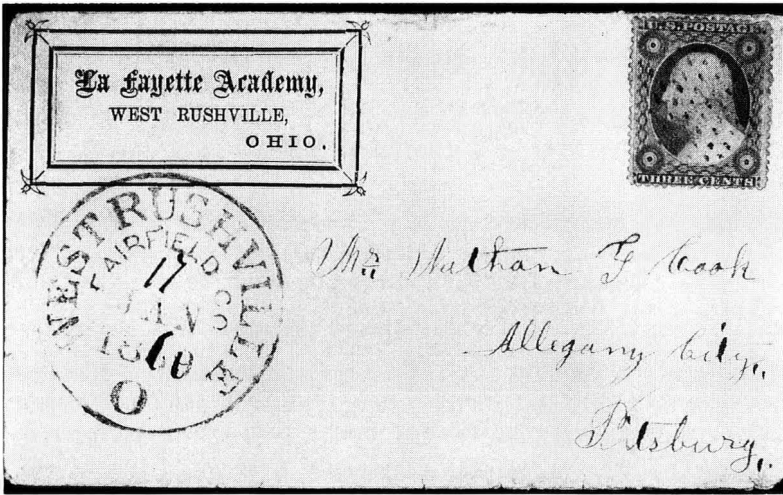 La Fayette Academy,
WEST RUSHVILLE,
OHIO.
U.S. POSTAGE
THREE CENTS
WEST RUSHVILLE
FAIRFIELD CO
17
JAN
1860
O
Mr Nathan F Cook
Allegany City,
Pitsburg,